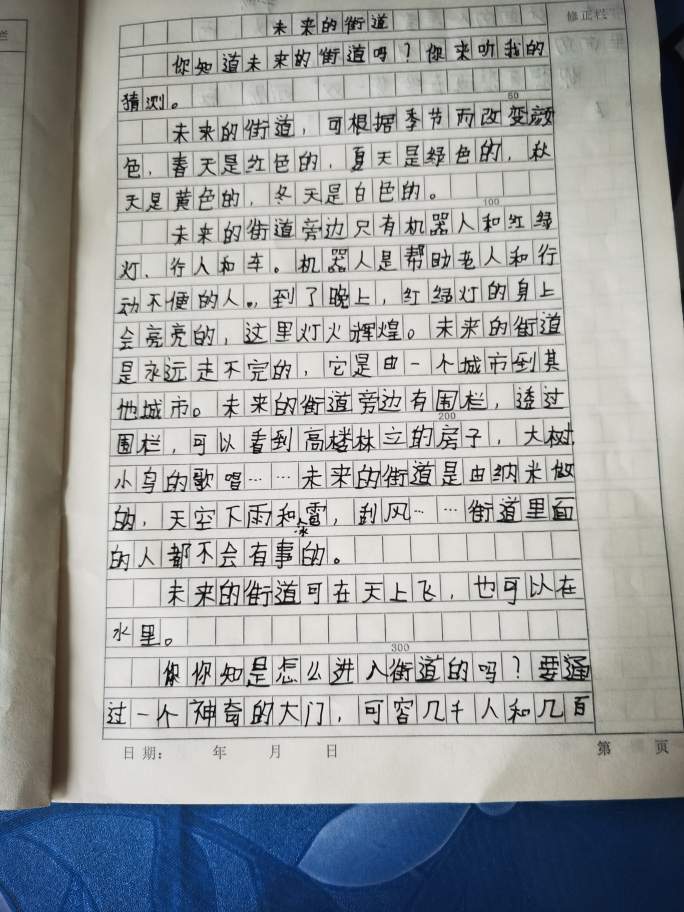 修正栏
未来的街道
你知道未来的街道吗？你来听我的
猜测。
50
未来的街道，可根据季节而改变颜
色，春天是红色的，夏天是绿色的，秋
天是黄色的，冬天是白色的。
100
未来的街道旁边只有机器人和红绿
灯、行人和车。机器人是帮助老人和行
动不便的人。，到了晚上，红绿灯的身上
会亮亮的，这里灯火辉煌。未来的街道
是永远走不完的，它是由一个城市到其
他城市。未来的街道旁边有围栏，透过
200
围栏，可以看到高楼林立的房子，大树
小鸟的歌唱……未来的街道是由纳米做
的，天空下雨和冰雹，刮风……街道里面
的人都不会有事的。
未来的街道可在天上飞，也可以在
水里。
300
你你知是怎么进入街道的吗？要通
过一个神奇的大门，可容几千人和几百
日期： 年 月 日 第 页